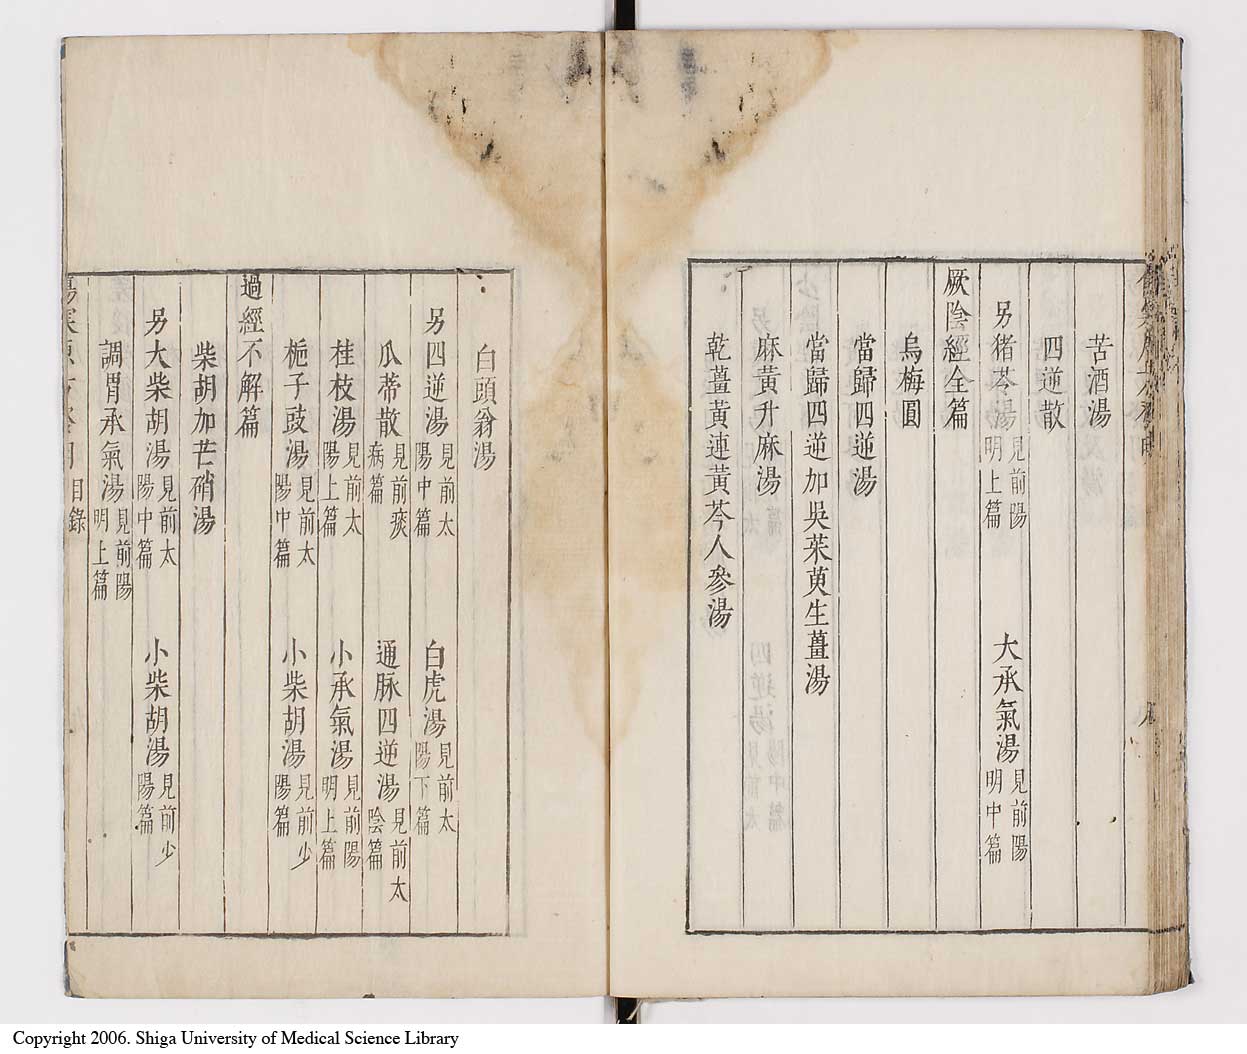 苦酒湯
四逆散
另猪苓湯見前陽明上篇 大承氣湯見前陽明中篇
厥陰經全篇
烏梅圓
當歸四逆湯
當歸四逆加吳茱萸生薑湯
麻黃升麻湯
乾薑黃連黃芩人參湯
白頭翁湯
另四逆湯見前太陽中篇 白虎湯見前太陽下篇
瓜蒂散見前痰病篇 通脉四逆湯見前太陰篇
桂枝湯見前太陽上篇 小承氣湯見前陽明上篇
梔子豉湯見前太陽中篇 小柴胡湯見前少陽篇
過經不解篇
柴胡加芒硝湯
另大柴胡湯見前太陽中篇 小柴胡湯見前少陽篇
調胃承氣湯見前陽明上篇
目錄
Copyright 2006. Shiga University of Medical Science Library